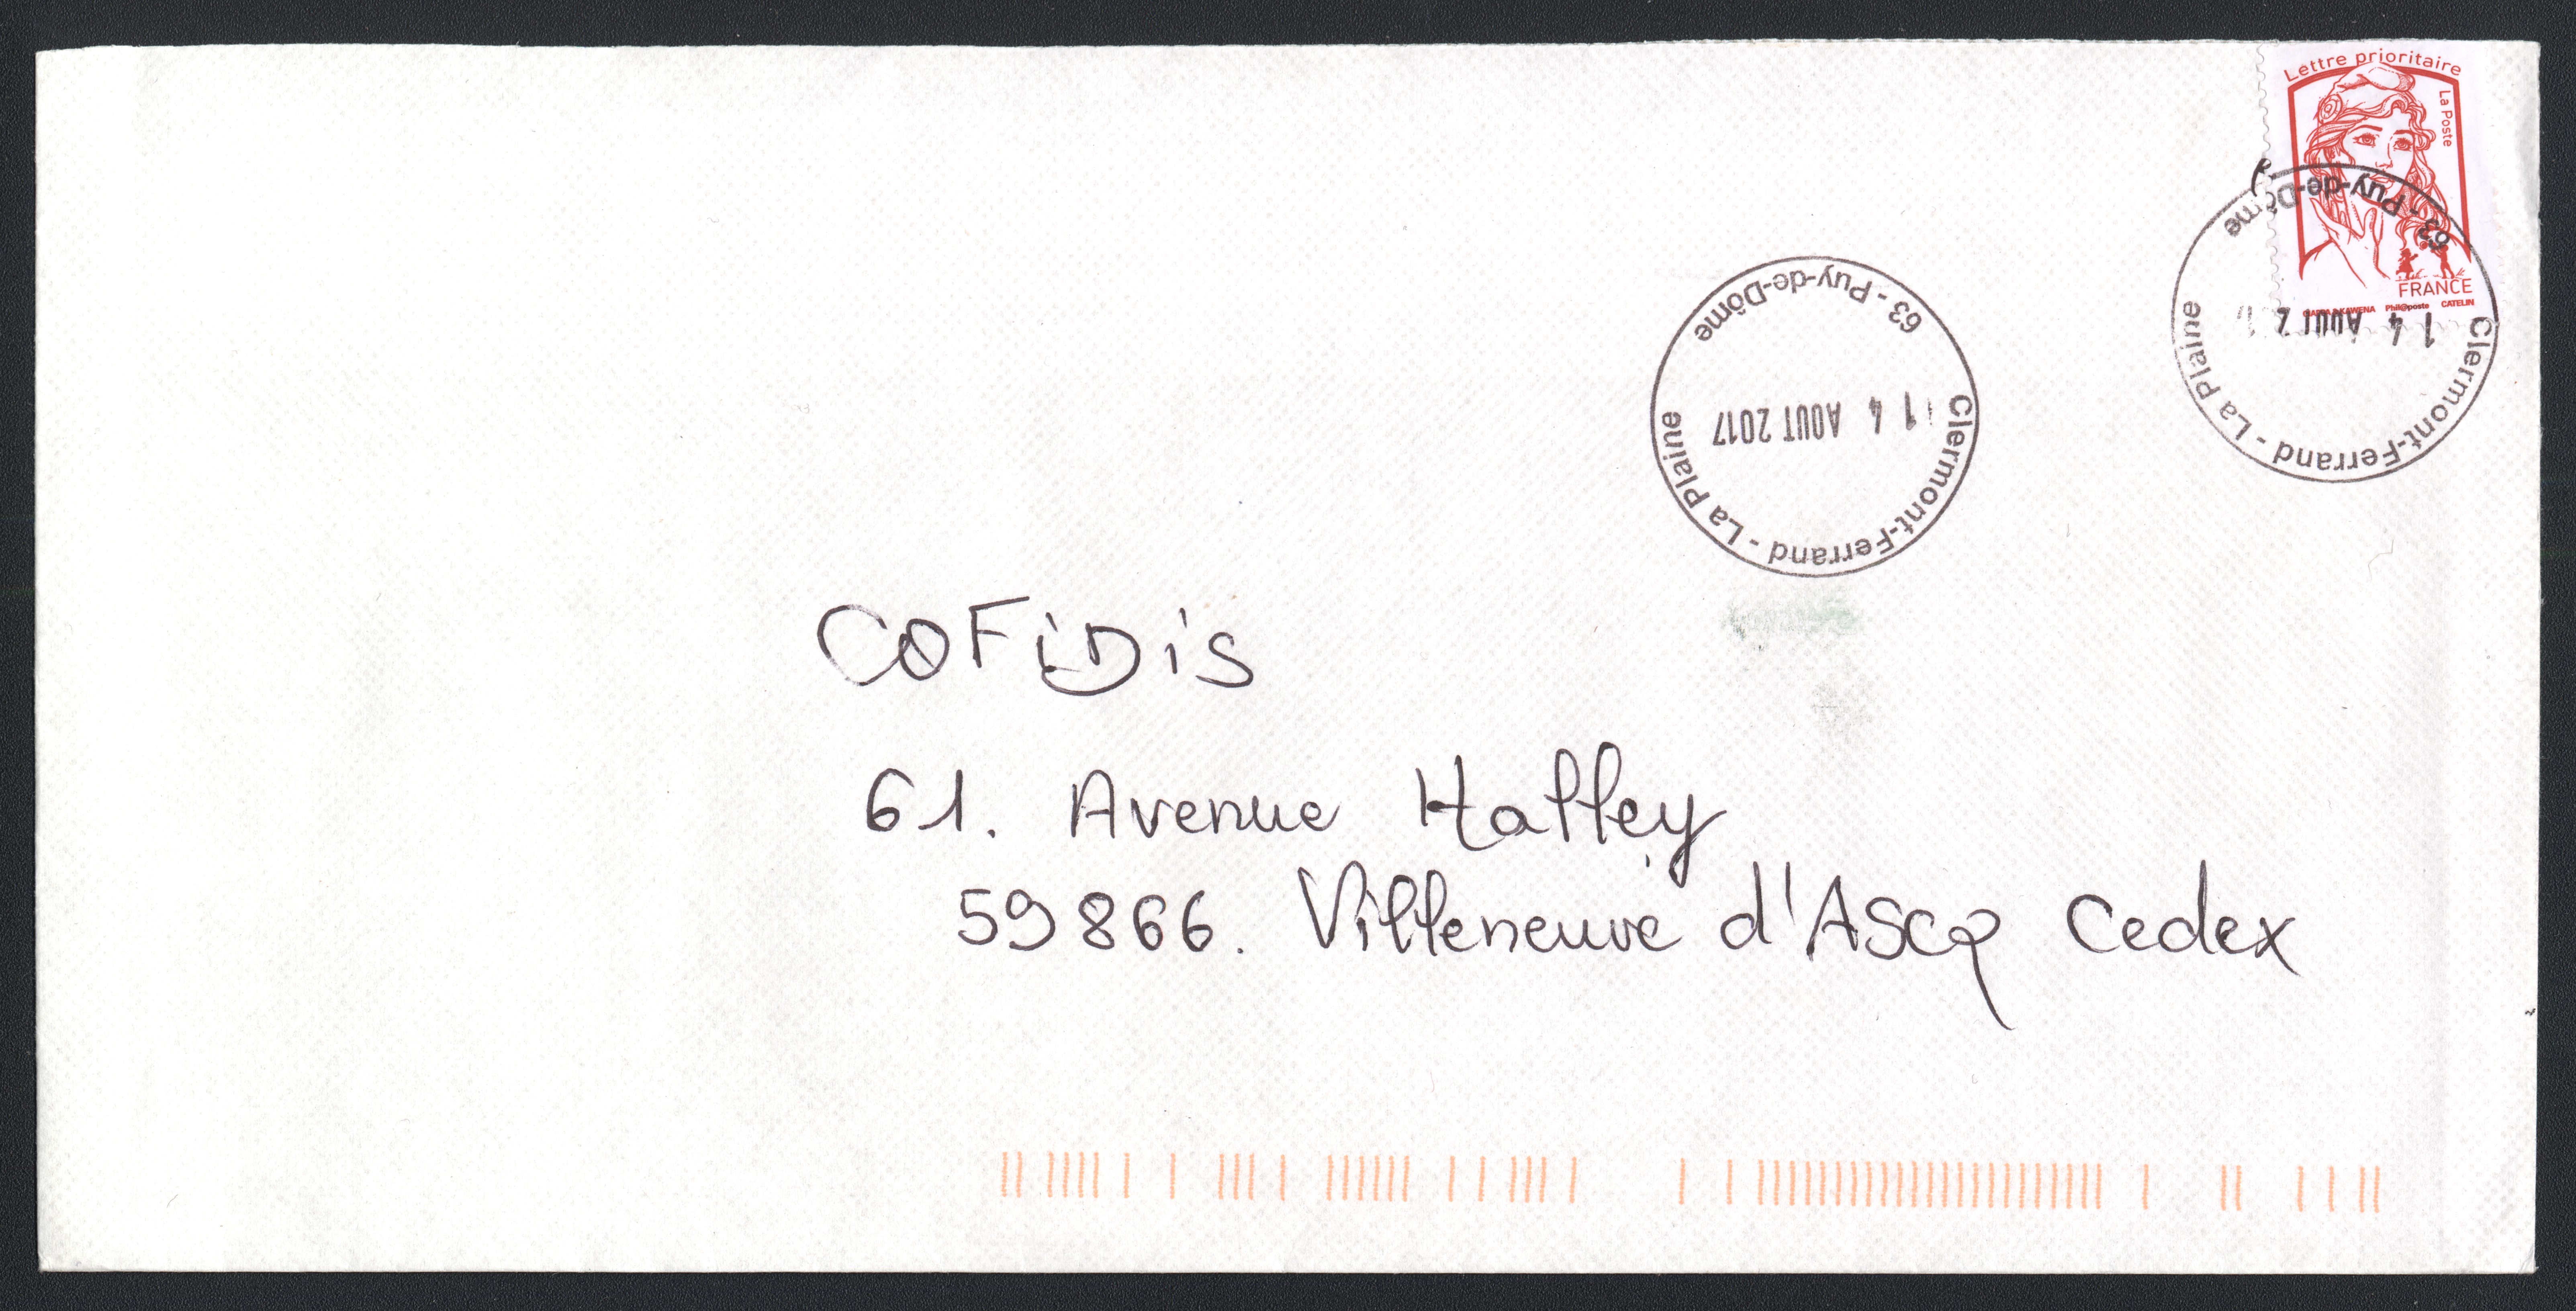 Lettre prioritaire
La Poste
FRANCE
CIAPPA & KAWENA Phil@poste CATELIN
63 - Puy-de-Dôme
14 AOUT 2
Clermont-Ferrand - La Plaine
63 - Puy-de-Dôme
14 AOUT 2017
Clermont-Ferrand - La Plaine
COFiDiS
61. Avenue Halley
59866. Villeneuve d'ASCQ Cedex